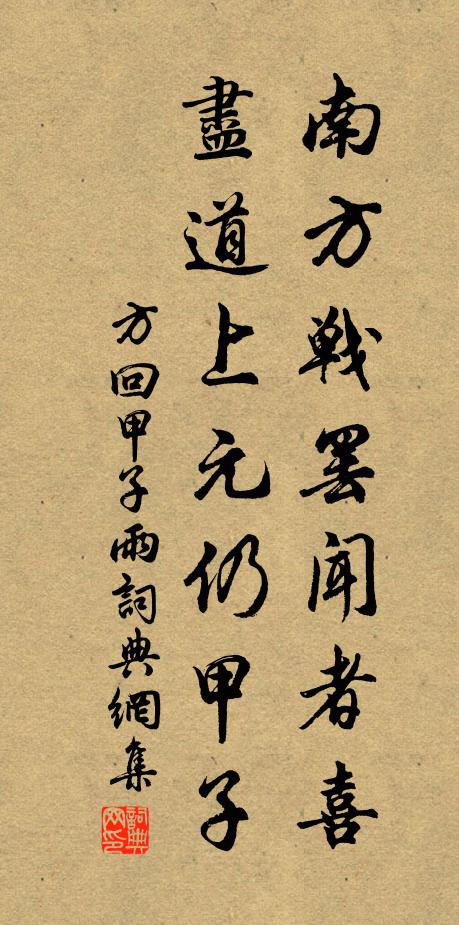 南方戰罷聞者喜
盡道上元仍甲子
方回甲子雨詞典網集
詞典網印